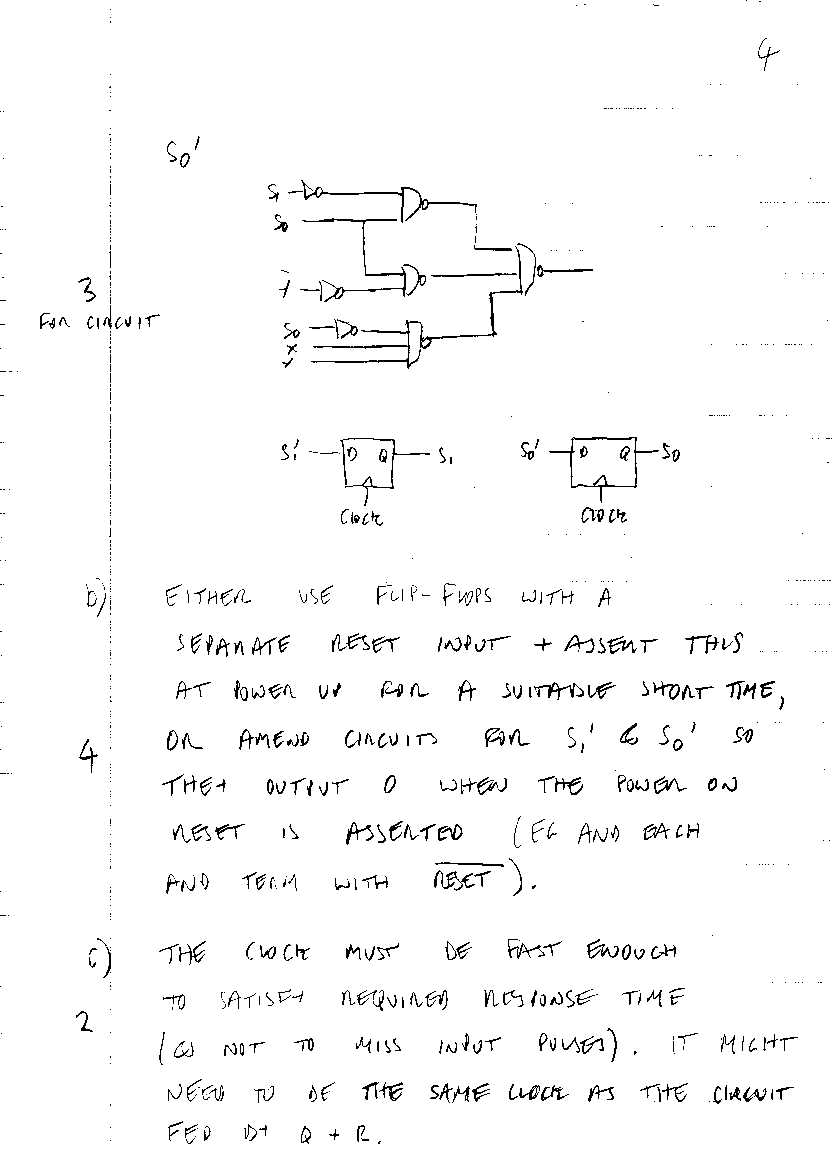 4
S0'
S1
S0
Y
3
FOR CIRCUIT
S0
X
Y
S1' D Q S1
S0' D Q S0
CLOCK CLOCK
b) EITHER USE FLIP-FLOPS WITH A
SEPARATE RESET INPUT + ASSERT THIS
AT POWER UP FOR A SUITABLE SHORT TIME,
4 OR AMEND CIRCUITS FOR S1' & S0' SO
THEY OUTPUT 0 WHEN THE POWER ON
RESET IS ASSERTED (EG AND EACH
AND TERM WITH RESET).
c) THE CLOCK MUST BE FAST ENOUGH
TO SATISFY REQUIRED RESPONSE TIME
2 (& NOT TO MISS INPUT PULSES). IT MIGHT
NEED TO BE THE SAME CLOCK AS THE CIRCUIT
FED BY Q + R.